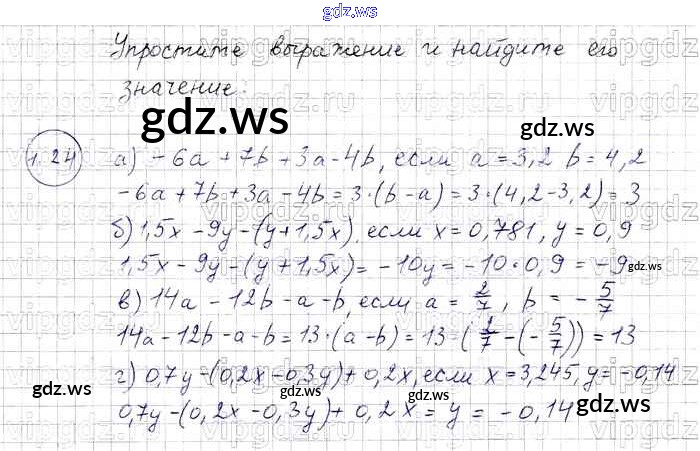 gdz.ws
Упростите выражение и найдите его
значение.
gdz.ws
1.24 а) -6a + 7b + 3a - 4b, если a = 3,2 b = 4,2
-6a + 7b + 3a - 4b = 3·(b - a) = 3·(4,2 - 3,2) = 3
б) 1,5x - 9y - (y + 1,5x), если x = 0,781, y = 0,9
1,5x - 9y - (y + 1,5x) = -10y = -10·0,9 = -9
gdz.ws
в) 14a - 12b - a - b, если a = 2/7, b = - 5/7
14a - 12b - a - b = 13·(a - b) = 13·(2/7 - (- 5/7)) = 13
г) 0,7y - (0,2x - 0,3y) + 0,2x, если x = 3,245, y = -0,14
gdz.ws
gdz.ws
0,7y - (0,2x - 0,3y) + 0,2x = y = -0,14